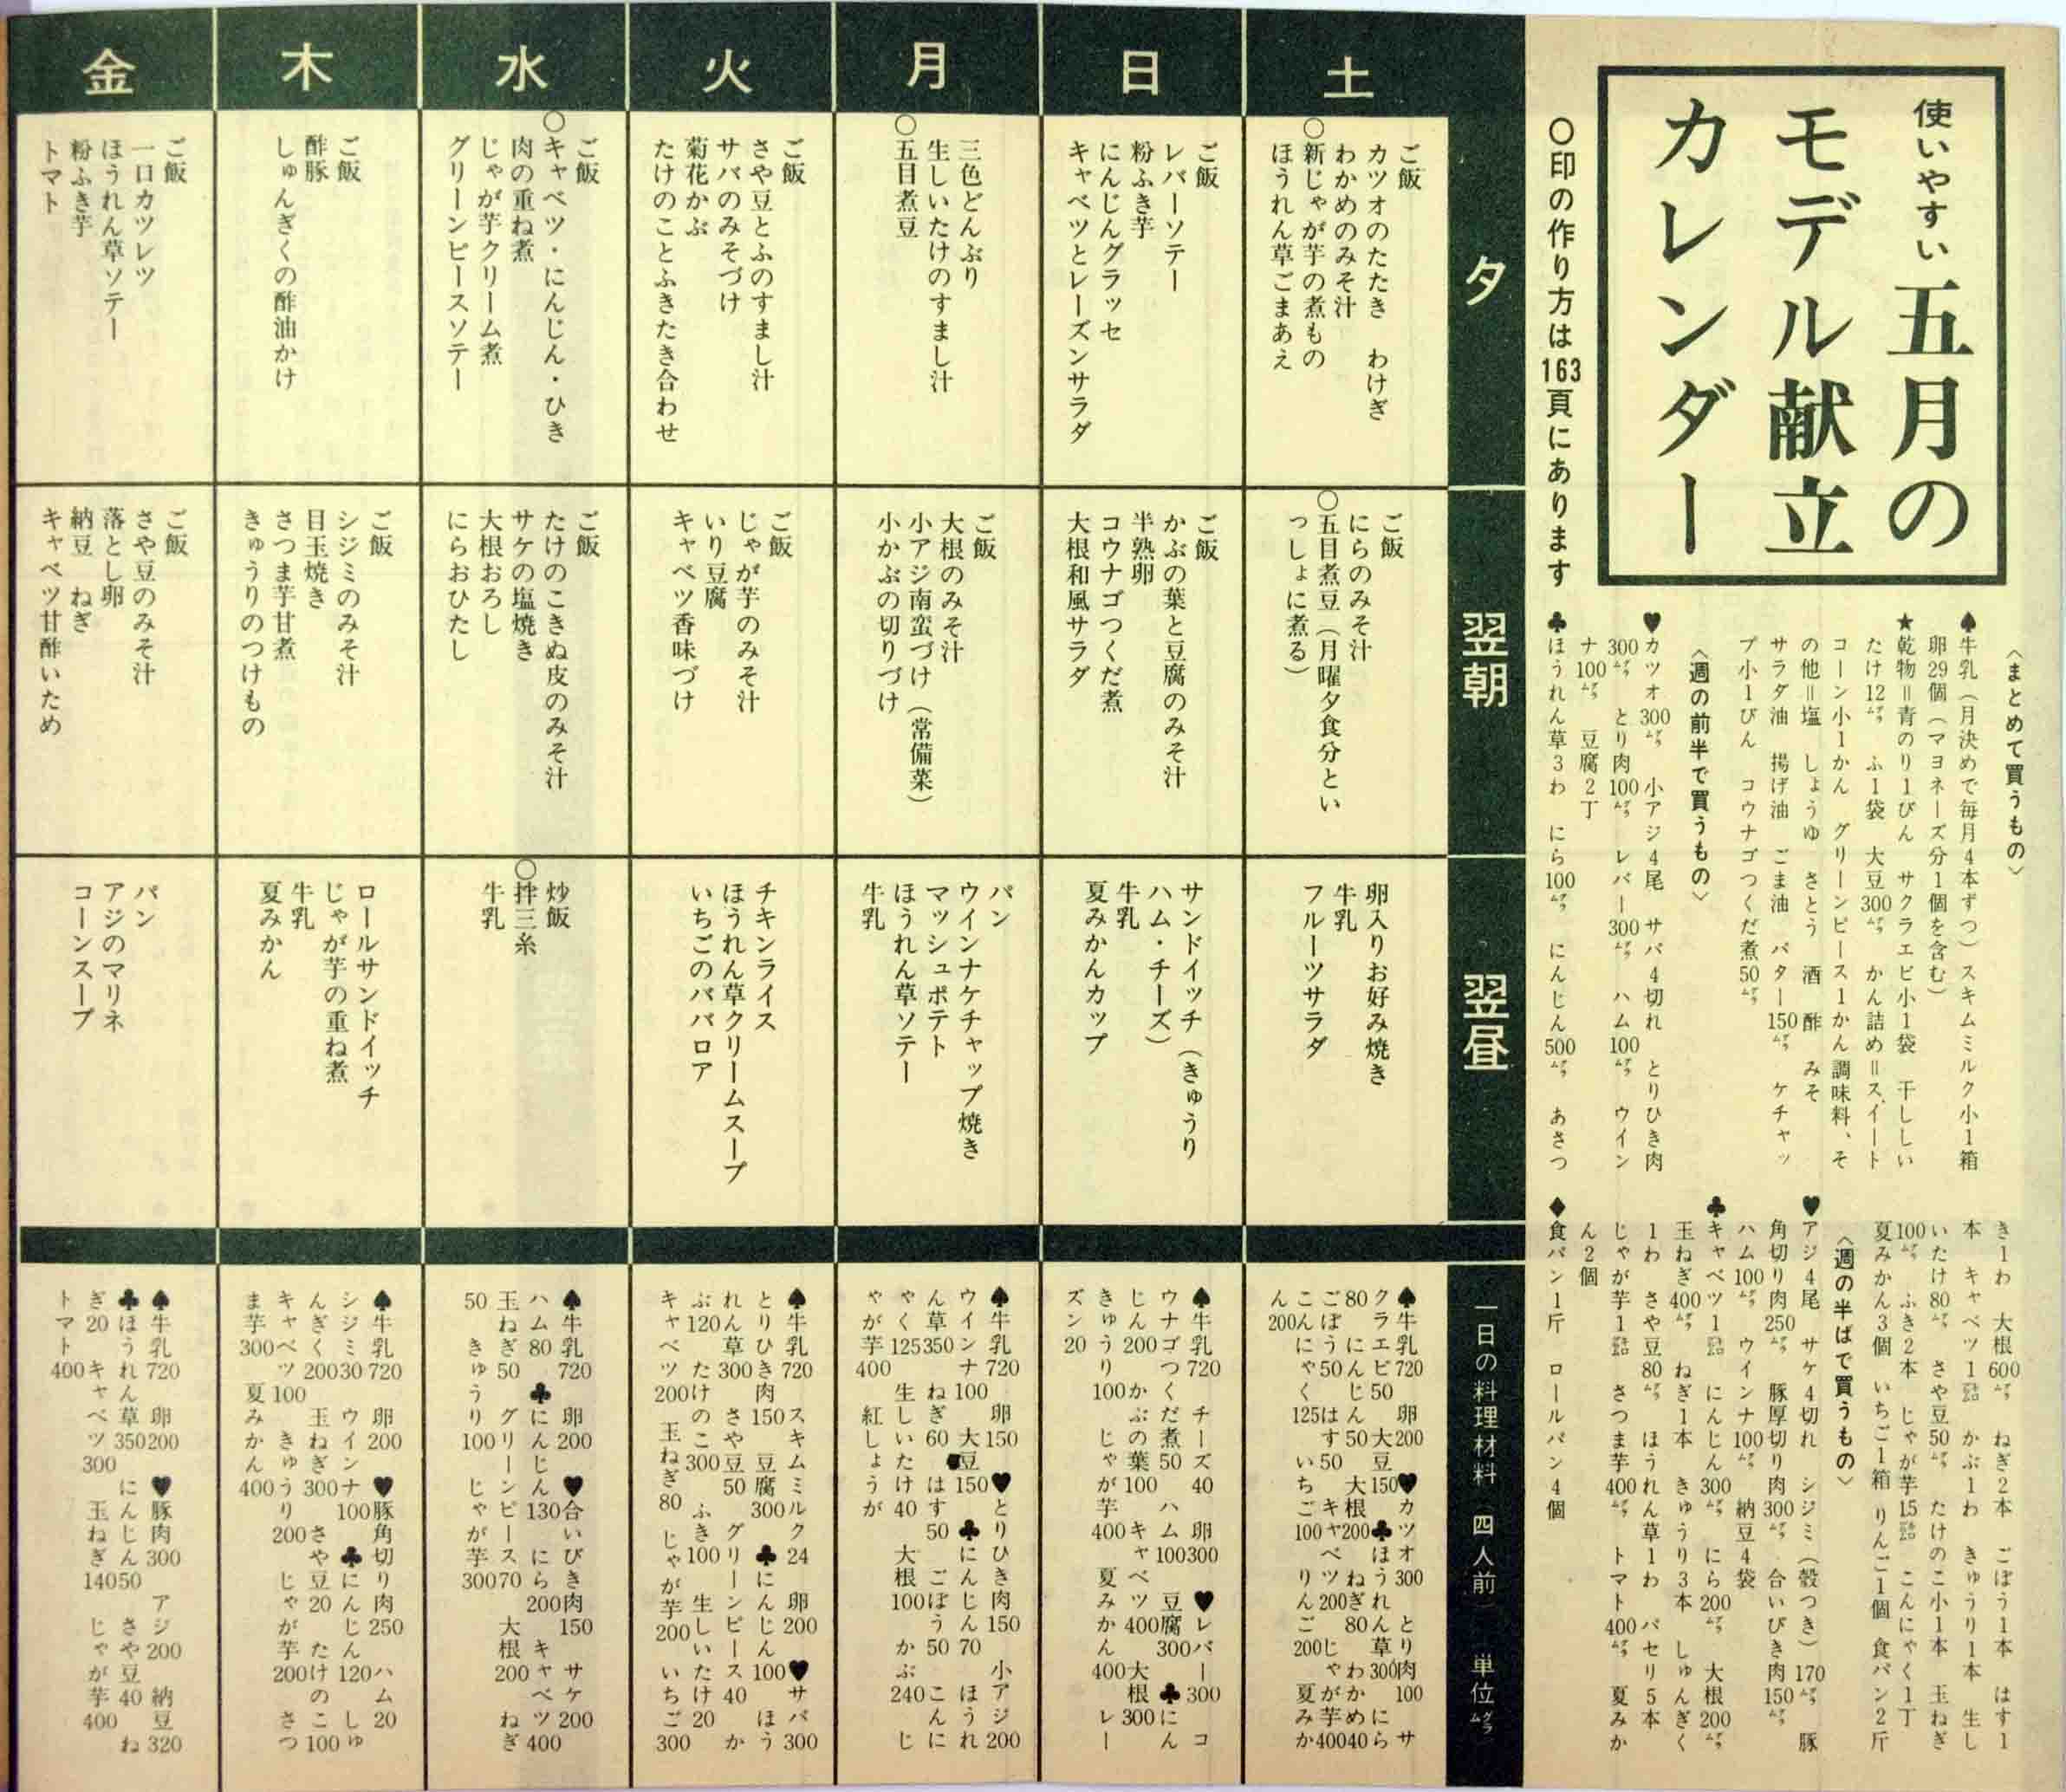 使いやすい 五月の
モデル献立
カレンダー
○印の作り方は163頁にあります
〈まとめて買うもの〉
♠牛乳（月決めで毎月4本ずつ）スキムミルク小1箱
卵29個（マヨネーズ分1個を含む）
★乾物＝青のり1びん サクラエビ小1袋 干ししい
たけ12㌘ ふ1袋 大豆300㌘ かん詰め＝スイート
コーン小1かん グリーンピース1かん 調味料、そ
の他＝塩 しょうゆ さとう 酒 酢 みそ
サラダ油 揚げ油 ごま油 バター150㌘ ケチャッ
プ小1びん コウナゴつくだ煮50㌘
〈週の前半で買うもの〉
♥カツオ300㌘ 小アジ4尾 サバ4切れ とりひき肉
300㌘ とり肉100㌘ レバー300㌘ ハム100㌘ ウイン
ナ100㌘ 豆腐2丁
♣ほうれん草3わ にら100㌘ にんじん500㌘ あさつ
き1わ 大根600㌘ ねぎ2本 ごぼう1本 はす1
本 キャベツ1㌔ かぶ1わ きゅうり1本 生し
いたけ80㌘ さや豆50㌘ たけのこ小1本 玉ねぎ
100㌘ ふき2本 じゃが芋1.5㌔ こんにゃく1丁
夏みかん3個 いちご1箱 りんご1個 食パン2斤
〈週の半ばで買うもの〉
♥アジ4尾 サケ4切れ シジミ（殻つき）170㌘ 豚
角切り肉250㌘ 豚厚切り肉300㌘ 合いびき肉150㌘
ハム100㌘ ウインナ100㌘ 納豆4袋
♣キャベツ1㌔ にんじん300㌘ にら200㌘ 大根200㌘
玉ねぎ400㌘ ねぎ1本 きゅうり3本 しゅんぎく
1わ さや豆80㌘ ほうれん草1わ パセリ5本
じゃが芋1㌔ さつま芋400㌘ トマト400㌘ 夏みか
ん2個
♦食パン1斤 ロールパン4個
夕
翌朝
翌昼
一日の料理材料（四人前）単位㌘
土
ご飯
カツオのたたき わけぎ
わかめのみそ汁
○新じゃが芋の煮もの
ほうれん草ごまあえ
ご飯
にらのみそ汁
○五目煮豆（月曜夕食分とい
っしょに煮る）
卵入りお好み焼き
牛乳
フルーツサラダ
♠牛乳720 卵200 ♥カツオ300 とり肉100 サ
クラエビ50 大豆150 ♣ほうれん草300 にら
80 にんじん50 大根200 ねぎ80 わかめ40
ごぼう50 はす50 キャベツ200 じゃが芋400
こんにゃく125 いちご100 りんご200 夏みか
ん200
日
ご飯
レバーソテー
粉ふき芋
にんじんグラッセ
キャベツとレーズンサラダ
ご飯
かぶの葉と豆腐のみそ汁
半熟卵
コウナゴつくだ煮
大根和風サラダ
サンドイッチ（きゅうり
ハム・チーズ）
牛乳
夏みかんカップ
♠牛乳720 チーズ40 卵300 ♥レバー300 コ
ウナゴつくだ煮50 ハム100 豆腐300 ♣にん
じん200 かぶの葉100 キャベツ400 大根300
きゅうり100 じゃが芋400 夏みかん400 レー
ズン20
月
三色どんぶり
生しいたけのすまし汁
○五目煮豆
ご飯
大根のみそ汁
小アジ南蛮づけ（常備菜）
小かぶの切りづけ
パン
ウインナケチャップ焼き
マッシュポテト
ほうれん草ソテー
牛乳
♠牛乳720 卵150 ♥とりひき肉150 小アジ200
ウインナ100 大豆150 ♣にんじん70 ほうれ
ん草350 ねぎ60 はす50 ごぼう50 こんに
ゃく125 生しいたけ40 大根100 かぶ240 じ
ゃが芋400 紅しょうが
火
ご飯
さや豆とふのすまし汁
サバのみそづけ
菊花かぶ
たけのことふきたき合わせ
ご飯
じゃが芋のみそ汁
いり豆腐
キャベツ香味づけ
チキンライス
ほうれん草クリームスープ
いちごのババロア
♠牛乳720 スキムミルク24 卵200 ♥サバ300
とりひき肉150 豆腐300 ♣にんじん100 ほう
れん草300 さや豆50 グリーンピース40 か
ぶ120 たけのこ300 ふき100 生しいたけ20
キャベツ200 玉ねぎ80 じゃが芋200 いちご300
水
ご飯
○キャベツ・にんじん・ひき
肉の重ね煮
じゃが芋クリーム煮
グリーンピースソテー
ご飯
たけのこきぬ皮のみそ汁
サケの塩焼き
大根おろし
にらおひたし
炒飯
○拌三糸
牛乳
♠牛乳720 卵200 ♥合いびき肉150 サケ200
ハム80 ♣にんじん130 にら200 キャベツ400
玉ねぎ50 グリーンピース70 大根200 ねぎ
50 きゅうり100 じゃが芋300
木
ご飯
酢豚
しゅんぎくの酢油かけ
ご飯
シジミのみそ汁
目玉焼き
さつま芋甘煮
きゅうりのつけもの
ロールサンドイッチ
じゃが芋の重ね煮
牛乳
夏みかん
♠牛乳720 卵200 ♥豚角切り肉250 ハム20
シジミ30 ウインナ100 ♣にんじん120 しゅ
んぎく200 玉ねぎ300 さや豆20 たけのこ100
キャベツ100 きゅうり200 じゃが芋200 さつ
ま芋300 夏みかん400
金
ご飯
一口カツレツ
ほうれん草ソテー
粉ふき芋
トマト
ご飯
さや豆のみそ汁
落とし卵
納豆 ねぎ
キャベツ甘酢いため
パン
アジのマリネ
コーンスープ
♠牛乳720 卵200 ♥豚肉300 アジ200 納豆320
♣ほうれん草350 にんじん50 さや豆40 ね
ぎ20 キャベツ300 玉ねぎ140 じゃが芋400
トマト400